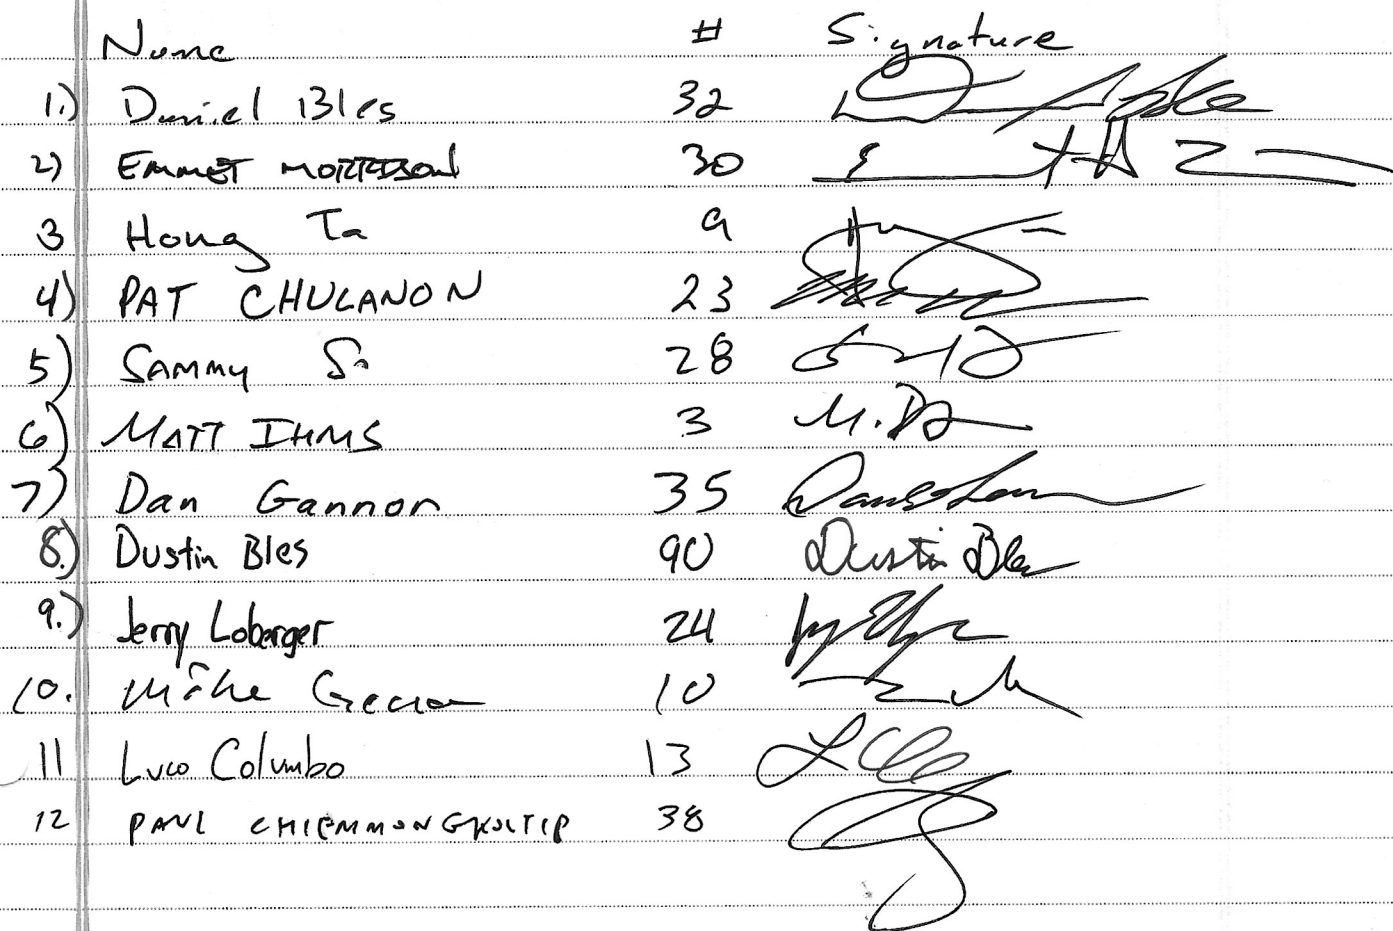 Name # Signature
1.) Daniel Bles 32
2) EMMET MORRISON 30
3 Hong Ta 9
4) PAT CHULANON 23
5) SAMMY So 28
6) MATT IHMS 3 M.
7) Dan Gannon 35
8.) Dustin Bles 90 Dustin Bles
9.) Jerry Loberger 24
10. Mike 10
11 Luco Columbo 13
12 PAUL CHIEMMONGKOLTIP 38